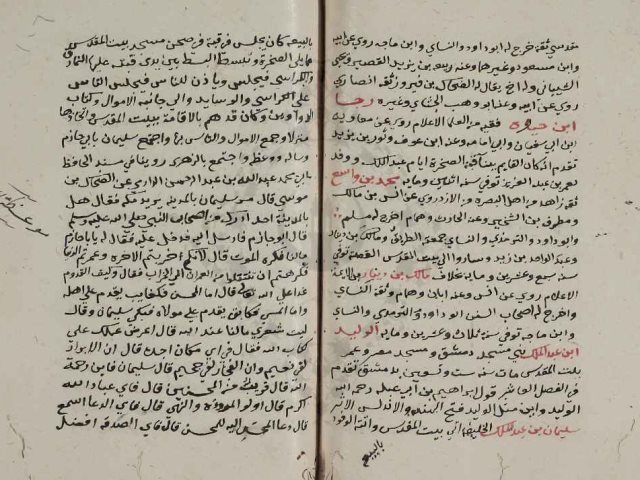 مقدسي ثقة خرج له ابو داود والنساي وابن ماجه روي عن ابيه
وابن مسعود وغيرهما وعنه ربيعة بن يزيد القصير ويحيى
الشيباني واخ يقال له الضحاك بن فيروز ثقة انصاري
روي عن ابيه وعنه ابو وهب الجيشاني وغيره رجا
ابن حيوة فقيه من العلما الاعلام روي عن معاوية
ابن ابي سفيان وابي امامه وعنه ابن عوف وثور بن يزيد
تقدم انه كان القايم ببنا قبة الصخرة ايام عبد الملك ووفد
لعمر بن عبد العزيز توفي سنة اثنتي وماية محمد بن واسع
ثقة زاهد من اهل البصرة من الازد روي عن انس بن مالك
ومطرف بن الشخير وعنه الحارث وهمام اخرج له مسلم
وابو داود والترمذي والنساي جمعه الطريق ومالك بن دينار
وعبد الواحد بن زيد وساروا الي بيت المقدس القصة توفي
سنة سبع وعشرين وماية بخلاف مالك بن دينار من الايمة
الاعلام روي عن انس وعنه ابان وهمام وثقه النساي
واخرج له اصحاب السنن ابو داود والترمذي والنساي
وابن ماجه توفي سنة ثلاث وعشرين وماية الوليد
ابن عبد الملك بني مسجد دمشق ومسجد مصر وعمر
بيت المقدس مات سنة ست وتسعين بدمشق تقدم
في الفصل العاشر قول ابراهيم بن ابي عبلة رحم الله
الوليد واين مثل الوليد فتح الهند والاندلس الاثر
سليمان بن عبد الملك الخليفة اتي بيت المقدس واتته الوفود
بالبيعة
بالبيعه كان يجلس في قبة في صحن مسجد بيت المقدس
مما يلي الصخرة وتبسط البسط بين يدي قبته عليها النمارق
والكراسي فيجلس وياذن للناس فيجلس الناس
علي الكراسي والوسايد والي جانبه الاموال وكتاب
الدواوين وكان قد هم بالاقامة ببيت المقدس واتخاذها
منزلا وجمع الاموال والناس بها واجتمع سليمان بابي حازم
وساله ووعظه واجتمع بالزهري روينا في مسند الحافظ
ابي محمد عبد الله بن عبد الرحمن الدارمي عن الضحاك بن
موسي قال مر سليمان بالمدينة يريد مكة فقال هل
بالمدينة احد ادرك من اصحاب النبي صلي الله عليه وسلم
قالو ابو حازم فارسل اليه فدخل عليه فقال له يا ابا حازم
مالنا نكره الموت قال لانكم اخربتم الاخرة وعمرتم الدنيا
فكرهتم ان تنتقلوا من العمران الي الخراب فقال وكيف القدوم
غدا علي الله تعالي قال اما المحسن فكغايب يقدم علي اهله
واما المسي فكابق يقدم علي مولاه فبكي سليمان وقال
ليت شعري مالنا عند الله قال اعرض عملك علي
كتاب الله فقال في اي مكان اجده قال ان الابرار
لفي نعيم وان الفجار لفي جحيم قال سليمان فاين رحمة
الله قال قريب من المحسنين قال فاي عباد الله
اكرم قال اولو المروة والنهي قال فاي الدعا اسمع
قال دعا المحسن اليه للمحسن قال فاي الصدقه افضل